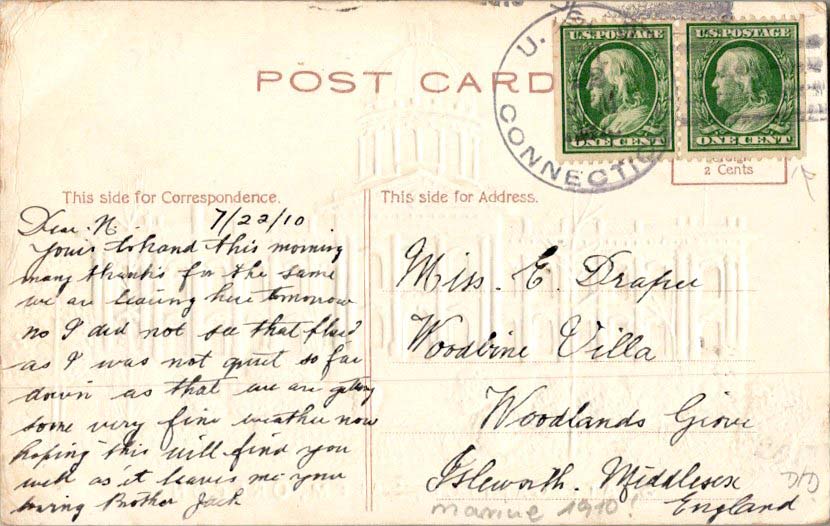 POST CARD
U.S.
CONNECTIC
U.S. POSTAGE
ONE CENT
U.S. POSTAGE
ONE CENT
2 Cents
This side for Correspondence.
Dear N. 7/22/10
Yours to hand this morning
many thanks for the same
we are leaving here tomorrow
no I did not see that
as I was not quit so far
down as that we are getting
some very fine weather now
hoping this will find you
well as it leaves me your
loving Brother Jack
This side for Address.
Miss. E. Draper
Woodbine Villa
Woodlands Grove
Isleworth. Middlesex
England
marine 1910!